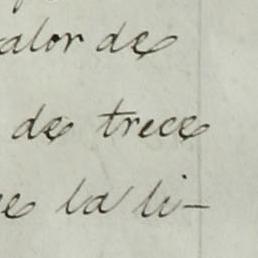 alor de
de trece
e la li-